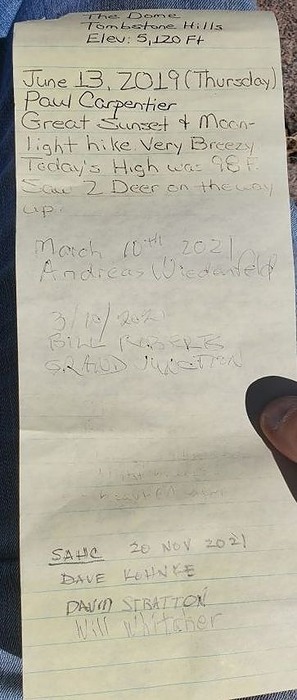 The Dome
Tombstone Hills
Elev: 5,120 Ft
June 13, 2019 (Thursday)
Paul Carpentier
Great Sunset & Moon-
light hike. Very Breezy
Today's High was 98 F.
Saw 2 Deer on the way
up.
March 10th 2021
Andreas Wiedenfeld
3/10/2021
BILL ROBERTS
GRAND JUNCTION
SAHC 20 NOV 2021
DAVE KOHNKE
DAVID STRATTON
Will Whitcher